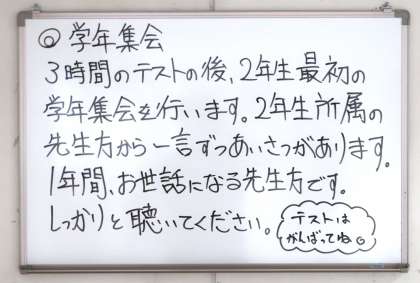 ◎ 学年集会
3時間のテストの後、2年生最初の
学年集会を行います。2年生所属の
先生方から一言ずつあいさつがあります。
1年間、お世話になる先生方です。
しっかりと聴いてください。
テストは
がんばってね。